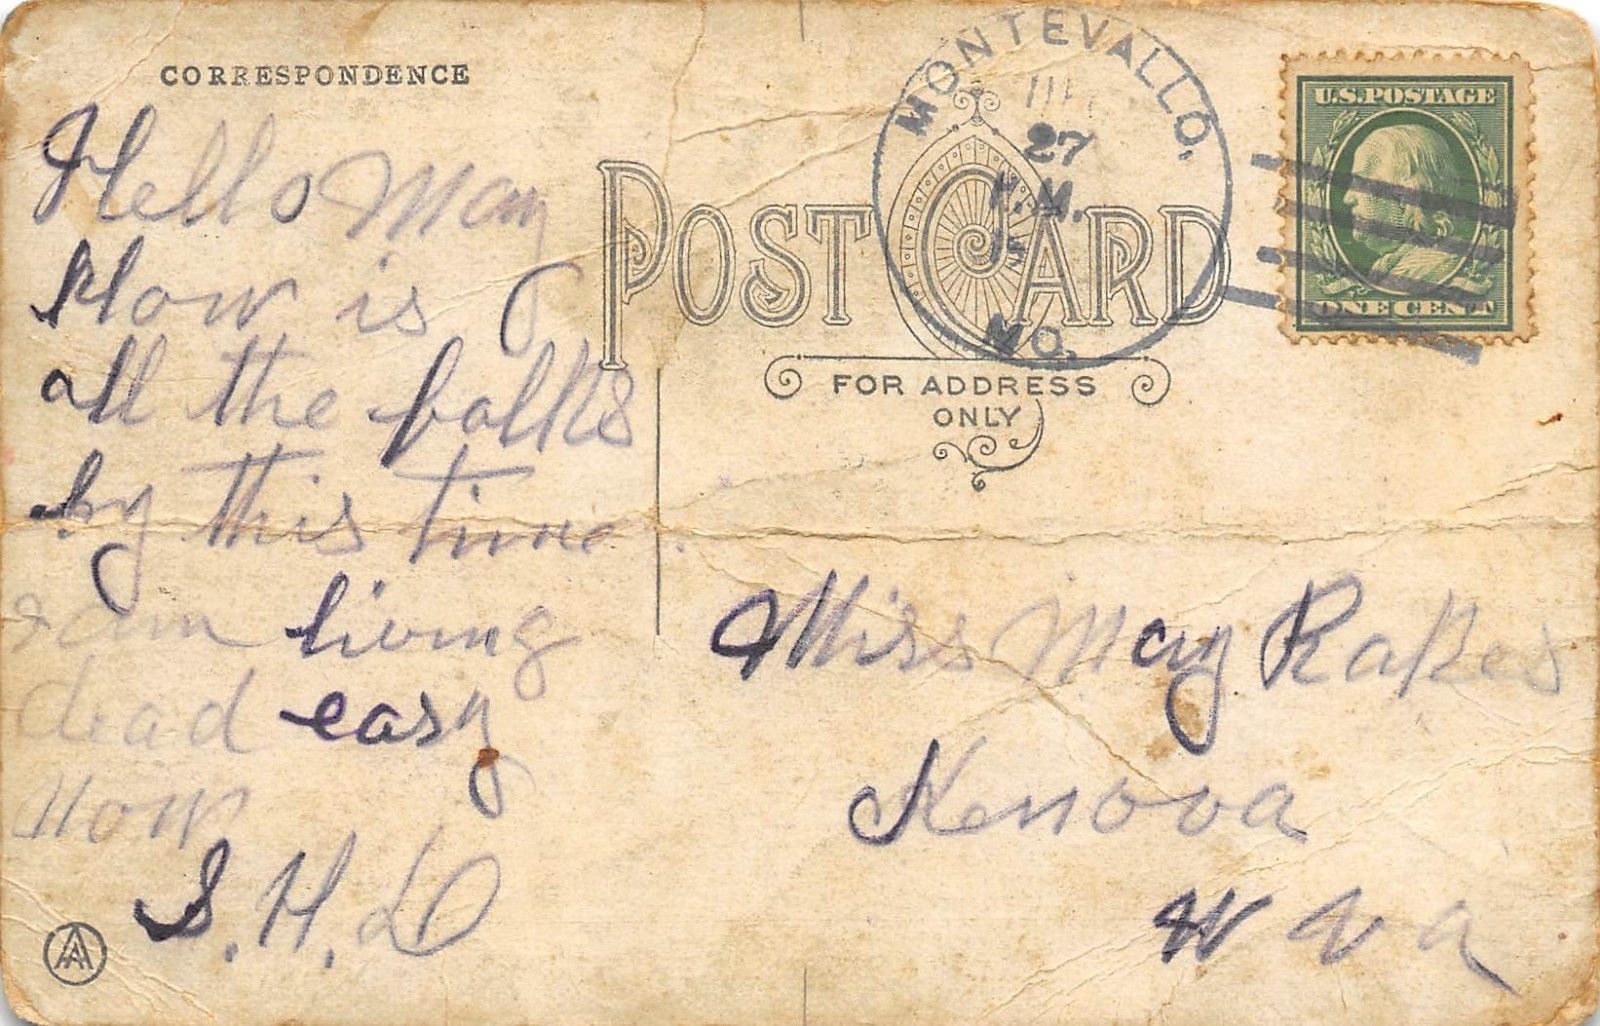 CORRESPONDENCE
Hello May
How is
all the folks
by this time.
I am living
dead easy
now
S. H. D
POST CARD
FOR ADDRESS
ONLY
MONTEVALLO,
27
MO.
U.S. POSTAGE
ONE CENT
Miss May Rakes
Kenova
W Va